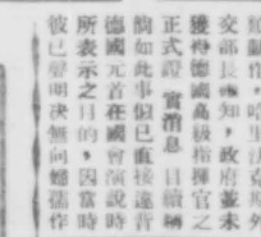 交部長㑹知，政府並未
獲得德國高級指揮官之
正式證實消息　目續稱
如此事個已直接違背
德國元首在國會演說時
所表示之目的，因當時
彼已聲明決無向婦孺作